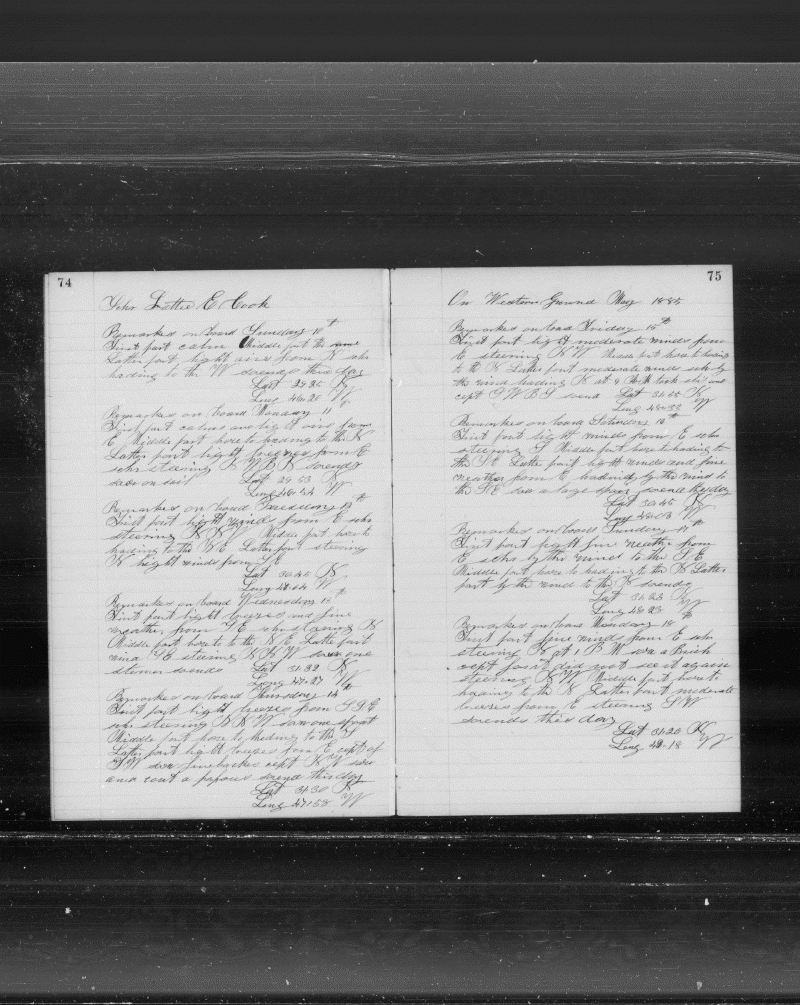 74
Schr Lottie E Cook
Remarkes on board Sunday 10th
First part calm Middle part the same
Latter part light aires from N schr
heading to the W so ends this day
Lat 29 25 N
Long 46 20 W
Remarkes on board Monday 11
First part calms and light aires from
E Middle part hove to heading to the N
Latter part light breezes from E
schr steering N W B N so ends
saw on sail
Lat 29 53 N
Long 46 54 W
Remarkes on board Tuesday 12th
First part light winds from E schr
steering N N W Middle part hove to
heading to the N E Latter part steering
N light winds from S E
Lat 30 40 N
Long W
Remarkes on board Wednesday 13th
First part light breezes and fine
weather from S E schr steering N
Middle part hove to to the N E Latter part
wind S E steering N N W saw one
steamer so ends Lat 31 22 N
Long 47 27 W
Remarkes on board Thursday 14th
First part light breezes from S S E
schr steering N N W saw one spout
Middle part hove to heding to the S
Latter part light breezes from E kept of
S W saw finebackes kept N W saw
and sent a papous so ends this day
Lat 31 30 N
Long 47 58 W
75
On Western Ground May 1885
Remarkes on board Friday 15th
First part light moderate winds from
E steering N W Middle part hove to heading
to the N Latter part moderate winds schr by
the wind heading N at 9 AM took and
cept S W B S so ends Lat 31 00 N
Long 48 33 W
Remarkes on board Saturday 16th
First part light winds from E schr
steering S Middle part hove to heading to
the S E Latter part light winds and fine
weather from E heading by the wind to
the N E saw a large spar so ends this day
Lat 30 45 N
Long 48 03 W
Remarkes on board Sunday 17th
First part light fine weather from
E schr by the wind to the S E
Middle part hove to heading to the N Latter
part by the wind to the N so ends
Lat 31 23 N
Long 48 23 W
Remarkes on board Monday 18th
First part fine winds from E schr
steering N at 1 P M saw a Brich
cept for it did not see it againe
steering N W Middle part hove to
heading to the N Latter part moderate
breezes from E steering S W
so ends this day
Lat 31 20 N
Long 48 18 W